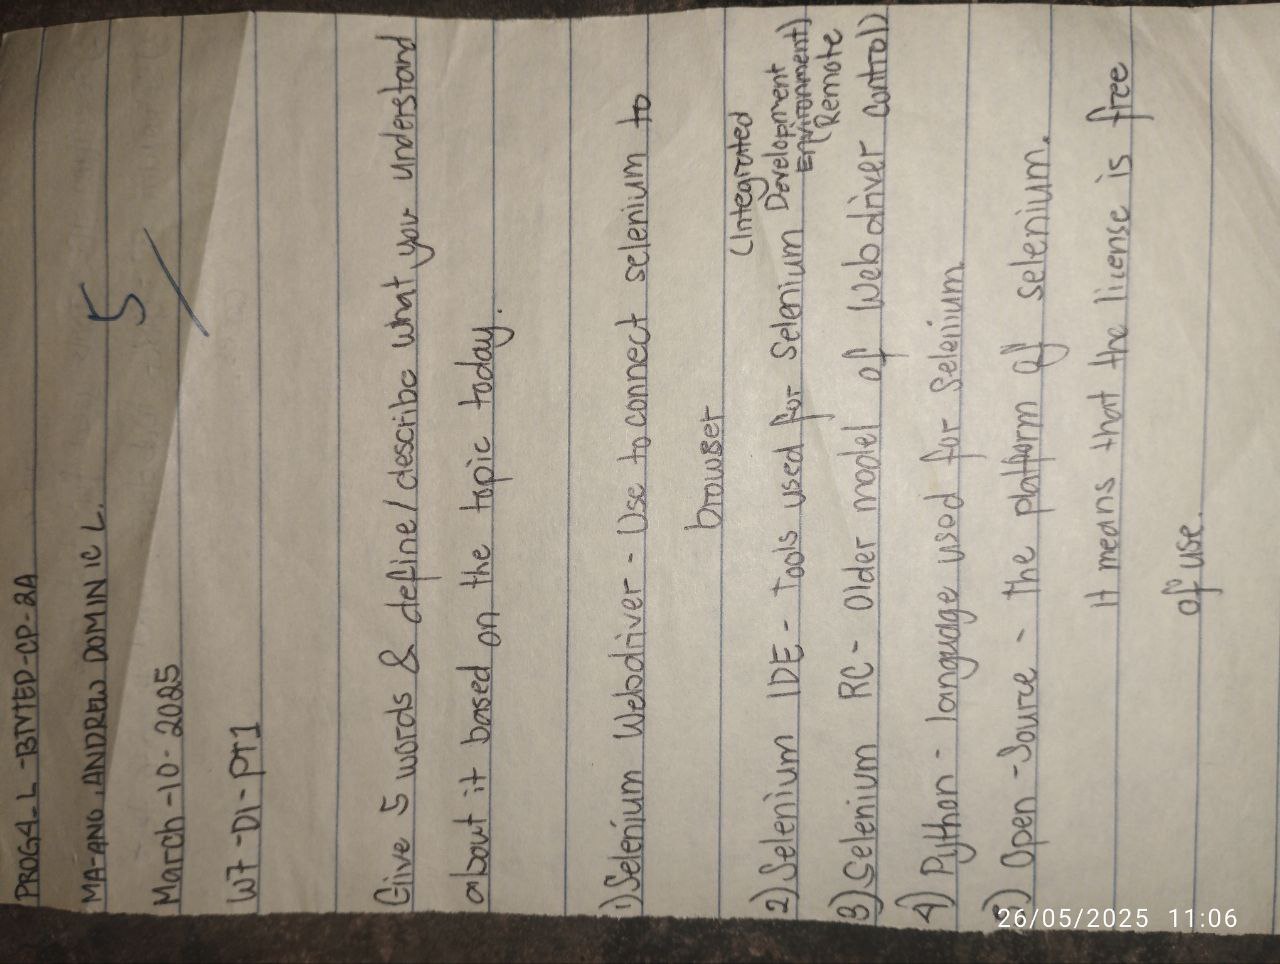 PROG4-L -BTVTED-CP-2A
MA-ANO, ANDREW DOMINIC L.
5
March-10-2025
W7-D1-PT1
Give 5 words & define/describe what you understand
about it based on the topic today.
1) Selenium Webdriver - Use to connect selenium to
browser
2) Selenium IDE - Tools used for Selenium (Integrated
Development
Environment)
3) Selenium RC - Older model of Webdriver (Remote
Control)
4) Python - language used for Selenium
5) Open-Source - the platform of selenium.
It means that the license is free
of use.
26/05/2025 11:06